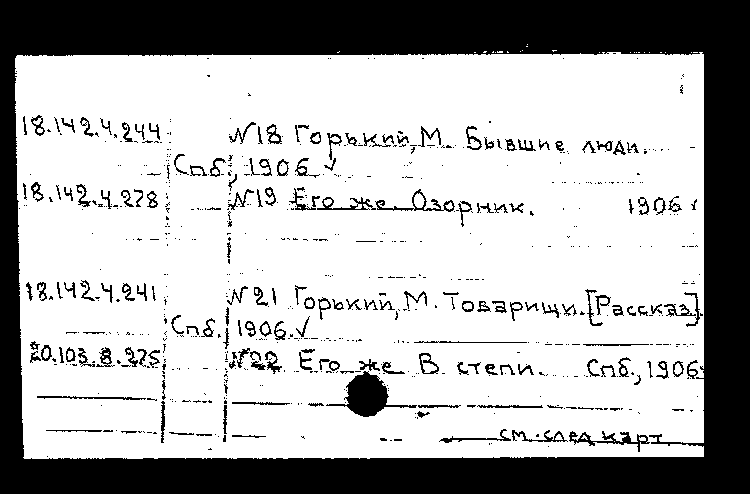 18.142.4.244 №18 Горький, М. Бывшие люди.
Спб., 1906 ✓
18.142.4.278 №19 Его же. Озорник. 1906 ✓
18.142.4.241 №21 Горький, М. Товарищи. [Рассказ].
Спб. 1906. ✓
20.103.8.275 №22 Его же В степи. Спб., 1906
см. след карт.